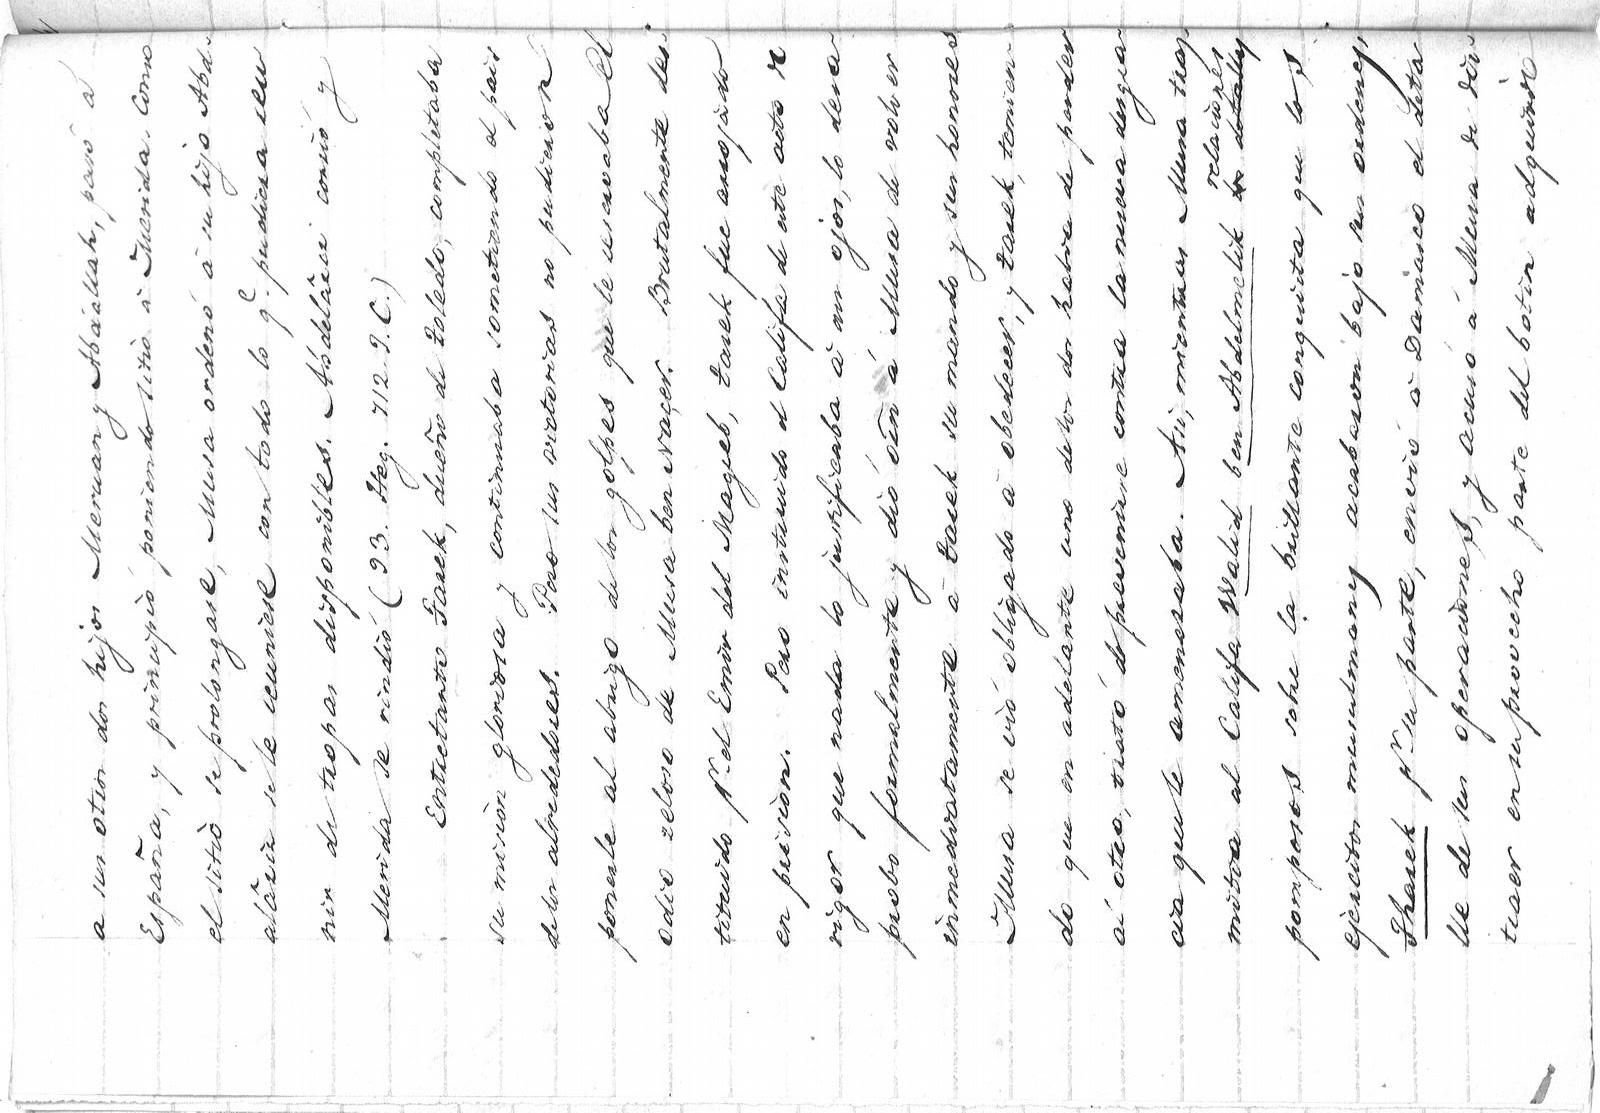 a sus otros dos hijos Meruan y Abdallah, pasó a
España, y principió poniendo sitio à Merida. Como
el sitio se prolongase, Musa ordenó à su hijo Abd-
alásis se le reuniese con todo lo q.e pudiera reu
nir de tropas disponibles. Abdelásis corrió y
Merida se rindió (93. Heg. 712 J.C.)
Entretanto Tarek, dueño de Toledo, completaba
su mision gloriosa y continuaba sometiendo el pais
delos alrededores. Pero sus victorias no pudieron
ponerle al abrigo delos golpes que le reservaba el
odio zeloso de Musa ben Naçer. Brutalmente des-
tituido pr el Emir del Magreb, Tarek fue arrojado
en prision. Pero instruido el Califa de este acto
rigor que nada lo justificaba à sus ojos, lo desa-
probó formalmente y dió órn á Musa de volver
inmediatamente a Tarek su mando y sus honores
Musa se vió obligado à obedecer, y Tarek, temien-
do que en adelante uno delos dos habia de perder
al otro, trató de prevenirse contra la nueva desgra-
cia que le amenazaba. Asi, mientras Musa tras
mitia al Califa Walid ben Abdelmelik los detalles relaciones
pomposos sobre la brillante conquista que los
ejercitos musulmanes acababan bajo sus ordenes,
Tharek pr su parte, envió a Damasco el deta
lle de sus operaciones, y acusó á Musa de dis-
traer en su provecho parte del botin adquirido